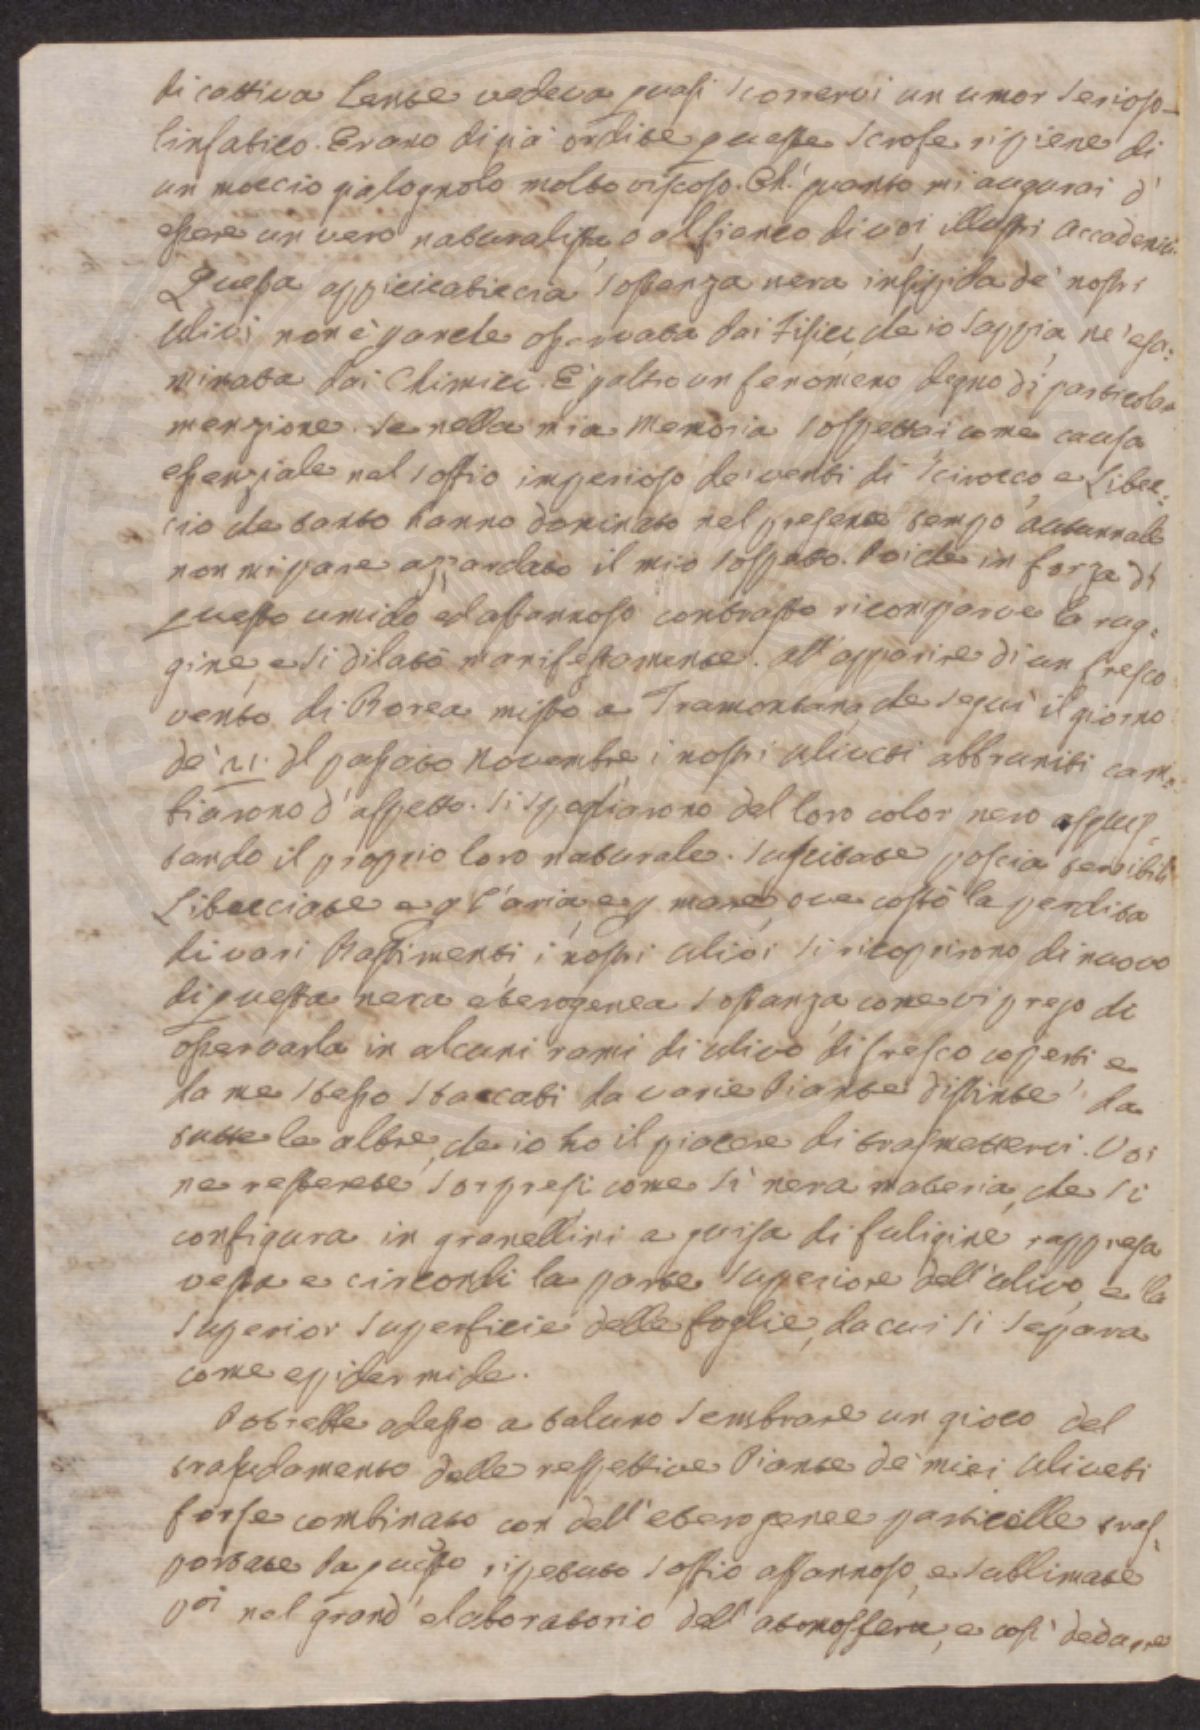 di cattiva Lente vedeva quasi scorrervi un umor serioso-
linfatico. Erano di più ordite queste scrofe ripiene di
un moccio gialognolo molto viscoso. Oh! quanto mi augurai d'
essere un vero naturalista, o al fianco di voi, illustri Accademici.
Questa appiccicaticcia sostanza nera insipida de' nostri
Ulivi non è parsa osservata dai Fisici, che io sappia, nè esa:
minata dai Chimici. È peltro un fenomeno degno di particolar
menzione. Se nella mia Memoria sospettai come causa
essenziale nel soffio imperioso de' venti di Scirocco, e Libec:
cio che tanto hanno dominato nel presente tempo autunnale
non mi pare azzardato il mio sospetto. Poichè in forza di
questo umido ed affannoso contrasto ricomparve la rug:
gine, e si dilatò manifestamente. All'apparire di un fresco
vento di Borea misto a Tramontana, che seguì il giorno
de' 21. del passato Novembre, i nostri uliveti abbruniti cam:
biarono d'aspetto. Si spogliarono del loro color nero acquis:
tando il proprio loro naturale. Suscitate poscia terribili
Libecciate e p l'aria, e p mare, ove costò la perdita
di vari Bastimenti, i nostri ulivi si ricoprirono di nuovo
di questa nera eterogenea sostanza, come vi prego di
osservarla in alcuni rami di ulivo di fresco coperti e
da me stesso staccati da varie Piante distinte da
tutte le altre, che io ho il piacere di trasmettervi. Voi
ne resterete sorpresi come sì nera materia, che si
configura in granellini a guisa di fuligine rappresa
vesta e circondi la parte superiore dell'ulivo, e la
superior superficie delle foglie, da cui si separa
come epidermide.
Potrebbe adesso a taluno sembrare un gioco del
trasudamento delle respettive Piante de' miei uliveti
forse combinato con dell'eterogenee particelle tras:
portate da questo ripetuto soffio affannoso, e sublimate
poi nel grand' elaboratorio dell'atmosfera, e così dedurre